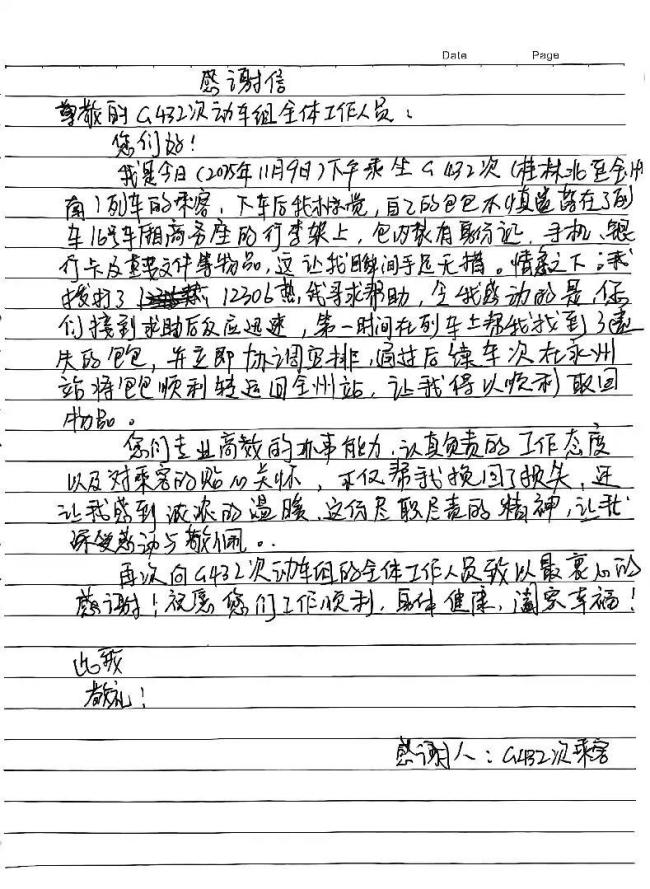 Date Page
感谢信
尊敬的G432次动车组全体工作人员：
您们好！
我是今日（2025年11月9日）下午乘坐G432次（桂林北至全州
南）列车的乘客，下车后我才察觉，自己的包包不慎遗落在了列
车16号车厢商务座的行李架上，包内装有身份证、手机、银
行卡及重要文件等物品，这让我瞬间手足无措。情急之下，我
拨打了12306热线寻求帮助，令我感动的是，您
们接到求助后反应迅速，第一时间在列车上帮我找到了遗
失的包包，并立即协调安排，通过后续车次在永州
站将包包顺利转运回全州站，让我得以顺利取回
物品。
您们专业高效的办事能力，认真负责的工作态度
以及对乘客的贴心关怀，不仅帮我挽回了损失，还
让我感到浓浓的温暖，这份尽职尽责的精神，让我
深受感动与敬佩。
再次向G432次动车组的全体工作人员致以最衷心的
感谢！祝愿您们工作顺利，身体健康，阖家幸福！
此致
敬礼！
感谢人：G432次乘客